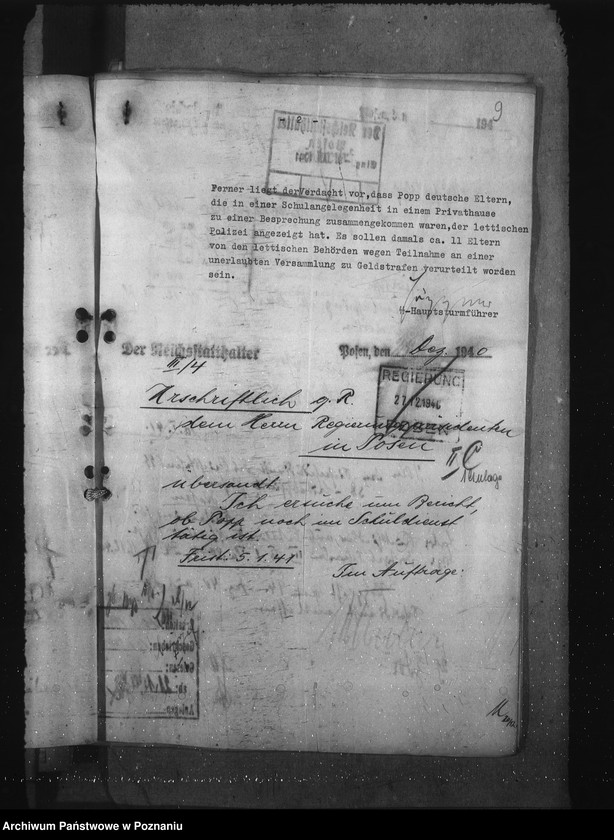 194 9
Ferner liegt derVerdacht vor,dass Popp deutsche Eltern,
die in einer Schulangelegenheit in einem Privathause
zu einer Besprechung zusammengekommen waren,der lettischen
Polizei angezeigt hat. Es sollen damals ca. 11 Eltern
von den lettischen Behörden wegen Teilnahme an einer
unerlaubten Versammlung zu Geldstrafen verurteilt worden
sein.
ᛋᛋ-Hauptsturmführer
Der Reichsstatthalter Posen, den Dez. 1940
II/4
REGIERUNG
27.12.1940
POSEN
Urschriftlich g. R.
dem Herrn Regierungspräsidenten
in Posen
1 Anlage
übersandt.
Ich ersuche um Bericht,
ob Popp noch im Schuldienst
tätig ist.
Frist: 5.1.41
Im Auftrage:
Archiwum Państwowe w Poznaniu